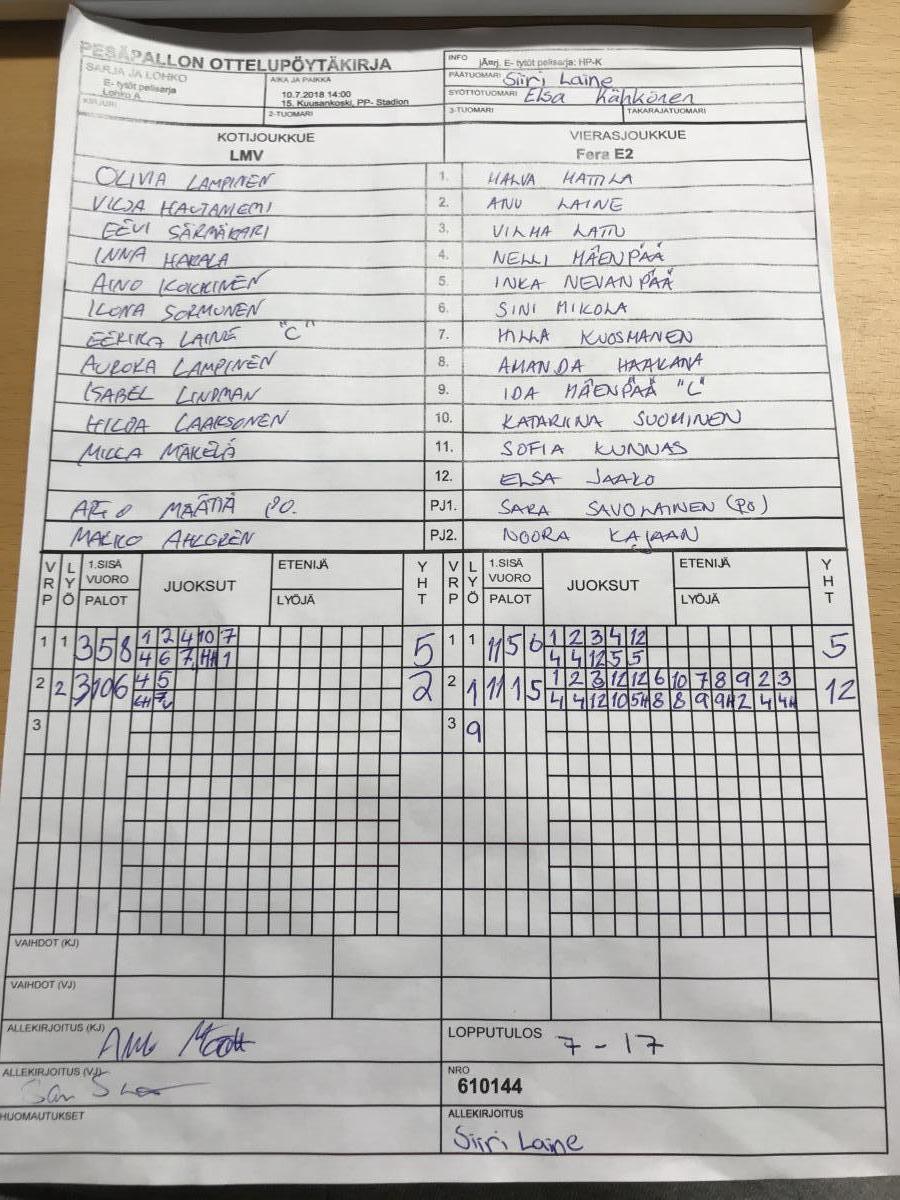 PESÄPALLON OTTELUPÖYTÄKIRJA
SARJA JA LOHKO
E- tytöt pelisarja
Lohko A
KIRJURI
AIKA JA PAIKKA
10.7.2018 14:00
15. Kuusankoski, PP- Stadion
2-TUOMARI
INFO jÄnrj. E- tytöt pelisarja: HP-K
PÄÄTUOMARI Siiri Laine
SYÖTTÖTUOMARI Elsa Kähkönen
3-TUOMARI TAKARAJATUOMARI
KOTIJOUKKUE
LMV
VIERASJOUKKUE
Fera E2
OLIVIA LAMPINEN 1.
VILJA HAUTANIEMI 2. ANU LAINE
EEVI SÄRMÄKARI 3. VILMA LATU
INNA HAKALA 4. NELLI MÄENPÄÄ
AINO KOKKINEN 5. INKA NEVANPÄÄ
ILONA SORMUNEN 6. SINI MIKOLA
EERIKA LAINE "C" 7. MILLA KUOSMANEN
AURORA LAMPINEN 8. AMANDA HAAKANA
ISABEL LINDMAN 9. IDA MÄENPÄÄ "C"
HILDA LAAKSONEN 10. KATARIINA SUOMINEN
MILLA MÄKELÄ 11. SOFIA KUNNAS
12. ELSA JAAKO
MÄÄTTÄ PJ1. SARA SAVOLAINEN (PO)
MARKO AHLGREN PJ2. NOORA KAJAAN
VRP LYÖ 1.SISÄ VUORO PALOT JUOKSUT ETENIJÄ LYÖJÄ YHT VRP LYÖ 1.SISÄ VUORO PALOT JUOKSUT ETENIJÄ LYÖJÄ YHT
1 1 3 5 8 1 2 4 10 7 5 1 1 11 5 6 1 2 3 4 12 5
4 6 7 1 4 4 12 5 5
2 2 3 10 6 4 5 2 2 1 11 1 5 1 2 3 12 12 6 10 7 8 9 2 3 12
4 4 12 10 5H 8 8 9 9H 2 4 4H
3 3 9
VAIHDOT (KJ)
VAIHDOT (VJ)
ALLEKIRJOITUS (KJ)
LOPPUTULOS 7 - 17
ALLEKIRJOITUS (VJ)
NRO
610144
HUOMAUTUKSET
ALLEKIRJOITUS
Siiri Laine